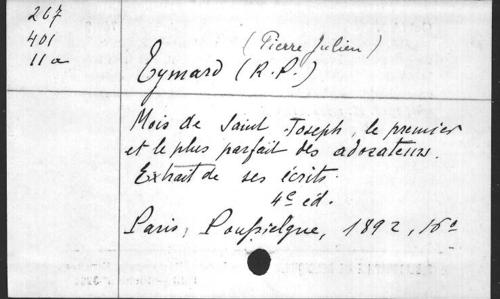 267
401
11a
(Pierre Julien)
Eymard (R. P.)
Mois de Saint Joseph, le premier
et le plus parfait des adorateurs.
Extrait de ses écrits.
4e éd.
Paris, Poussielgue, 1892, 16°